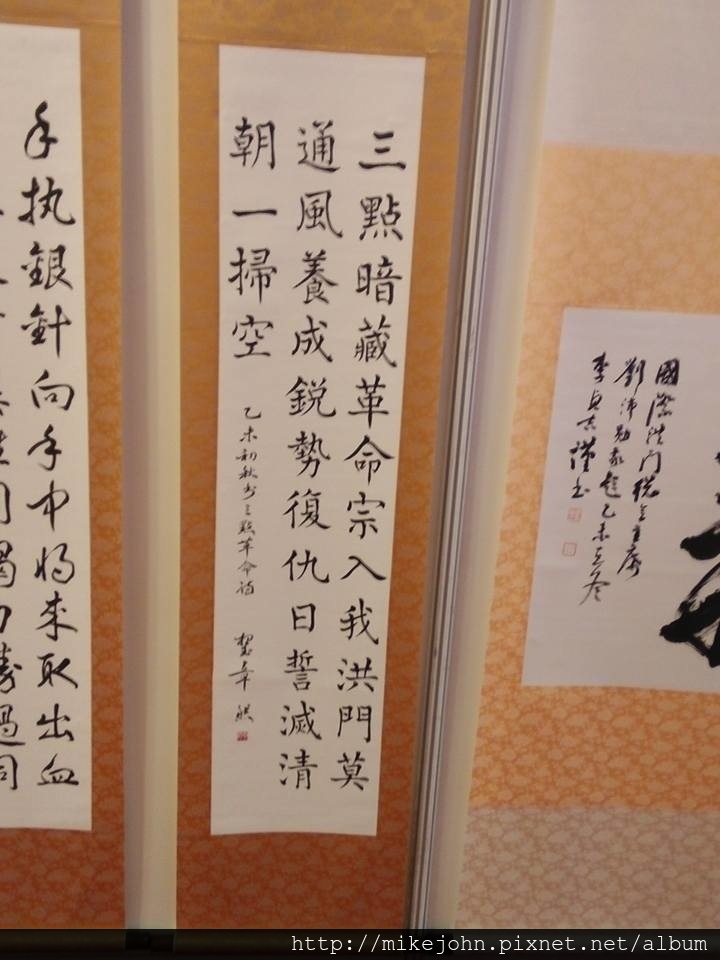 國際洪门總會主席
劉沛勛敬題乙未立冬
李貞吉謹书
三點暗藏革命宗入我洪門莫
通風養成銳勢復仇日誓滅清
朝一掃空
乙未初秋书三點革命诗
手执銀針向手中将来取出血
http://mikejohn.pixnet.net/album